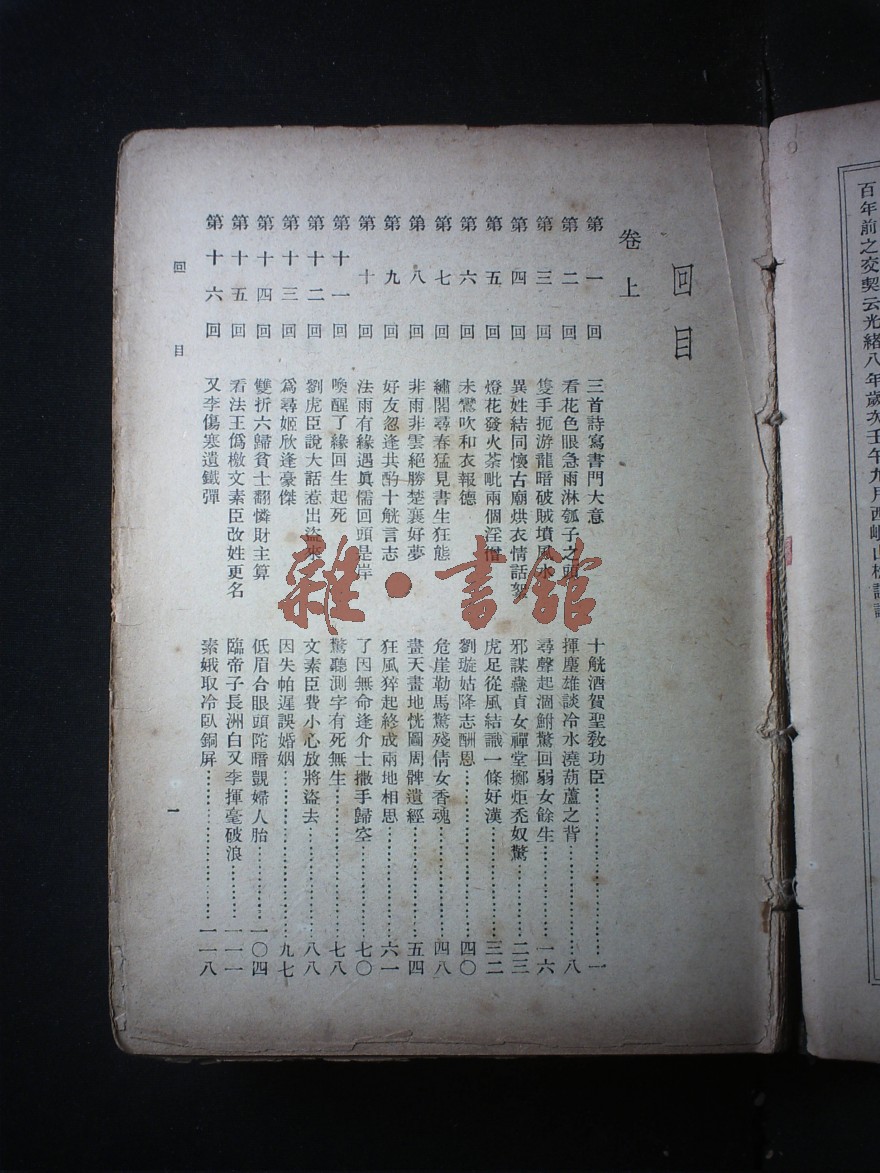 回目
卷上
第一回 三首詩寫書門大意 十觥酒賀聖教功臣……一
第二回 看花色眼急雨淋瓠子之頭 揮麈雄談冷水澆葫蘆之背……八
第三回 隻手扼游龍暗破賊墳風水 尋聲起涸鮒驚回弱女餘生……一六
第四回 異姓結同懷古廟烘衣情話絮 邪謀蠱貞女禪堂擲炬禿奴驚……二三
第五回 燈花發火荼毗兩個淫僧 虎足從風結識一條好漢……三二
第六回 未鸞吹和衣報德 劉璇姑降志酬恩……四〇
第七回 繡閣尋春猛見書生狂態 危崖勒馬驚殘倩女香魂……四八
第八回 非雨非雲絕勝楚襄好夢 畫天畫地恍圖周髀遺經……五四
第九回 好友忽逢共酌十觥言志 狂風猝起終成兩地相思……六一
第十回 法雨有緣遇眞儒回頭是岸 了因無命逢介士撒手歸空……七〇
第十一回 喚醒了緣回生起死 驚聽測字有死無生……七八
第十二回 劉虎臣說大話惹出盜來 文素臣費小心放將盜去……八八
第十三回 爲尋姬欣逢豪傑 因失帕遲誤婚姻……九七
第十四回 雙折六歸貧士翻憐財主算 低眉合眼頭陀暗覬婦人胎……一〇四
第十五回 看法王僞檄文素臣改姓更名 臨帝子長洲白又李揮毫破浪……一一一
第十六回 又李傷寒遺鐵彈 素娥取冷臥銅屏……一一八
回目
一
雜·書館
百年前之交契云光緒八年歲次壬午九月西岷山樵謹